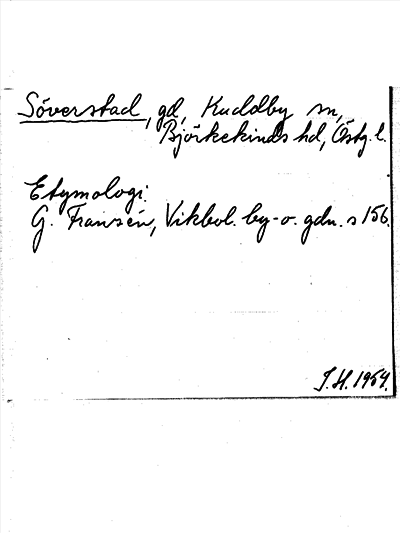 Söverstad, gd, Kuddby sn,
Björkekinds hd, Östg. l.
Etymologi:
G. Franzén, Vikbol. by- o. gdn. s 156.
J. H. 1954.